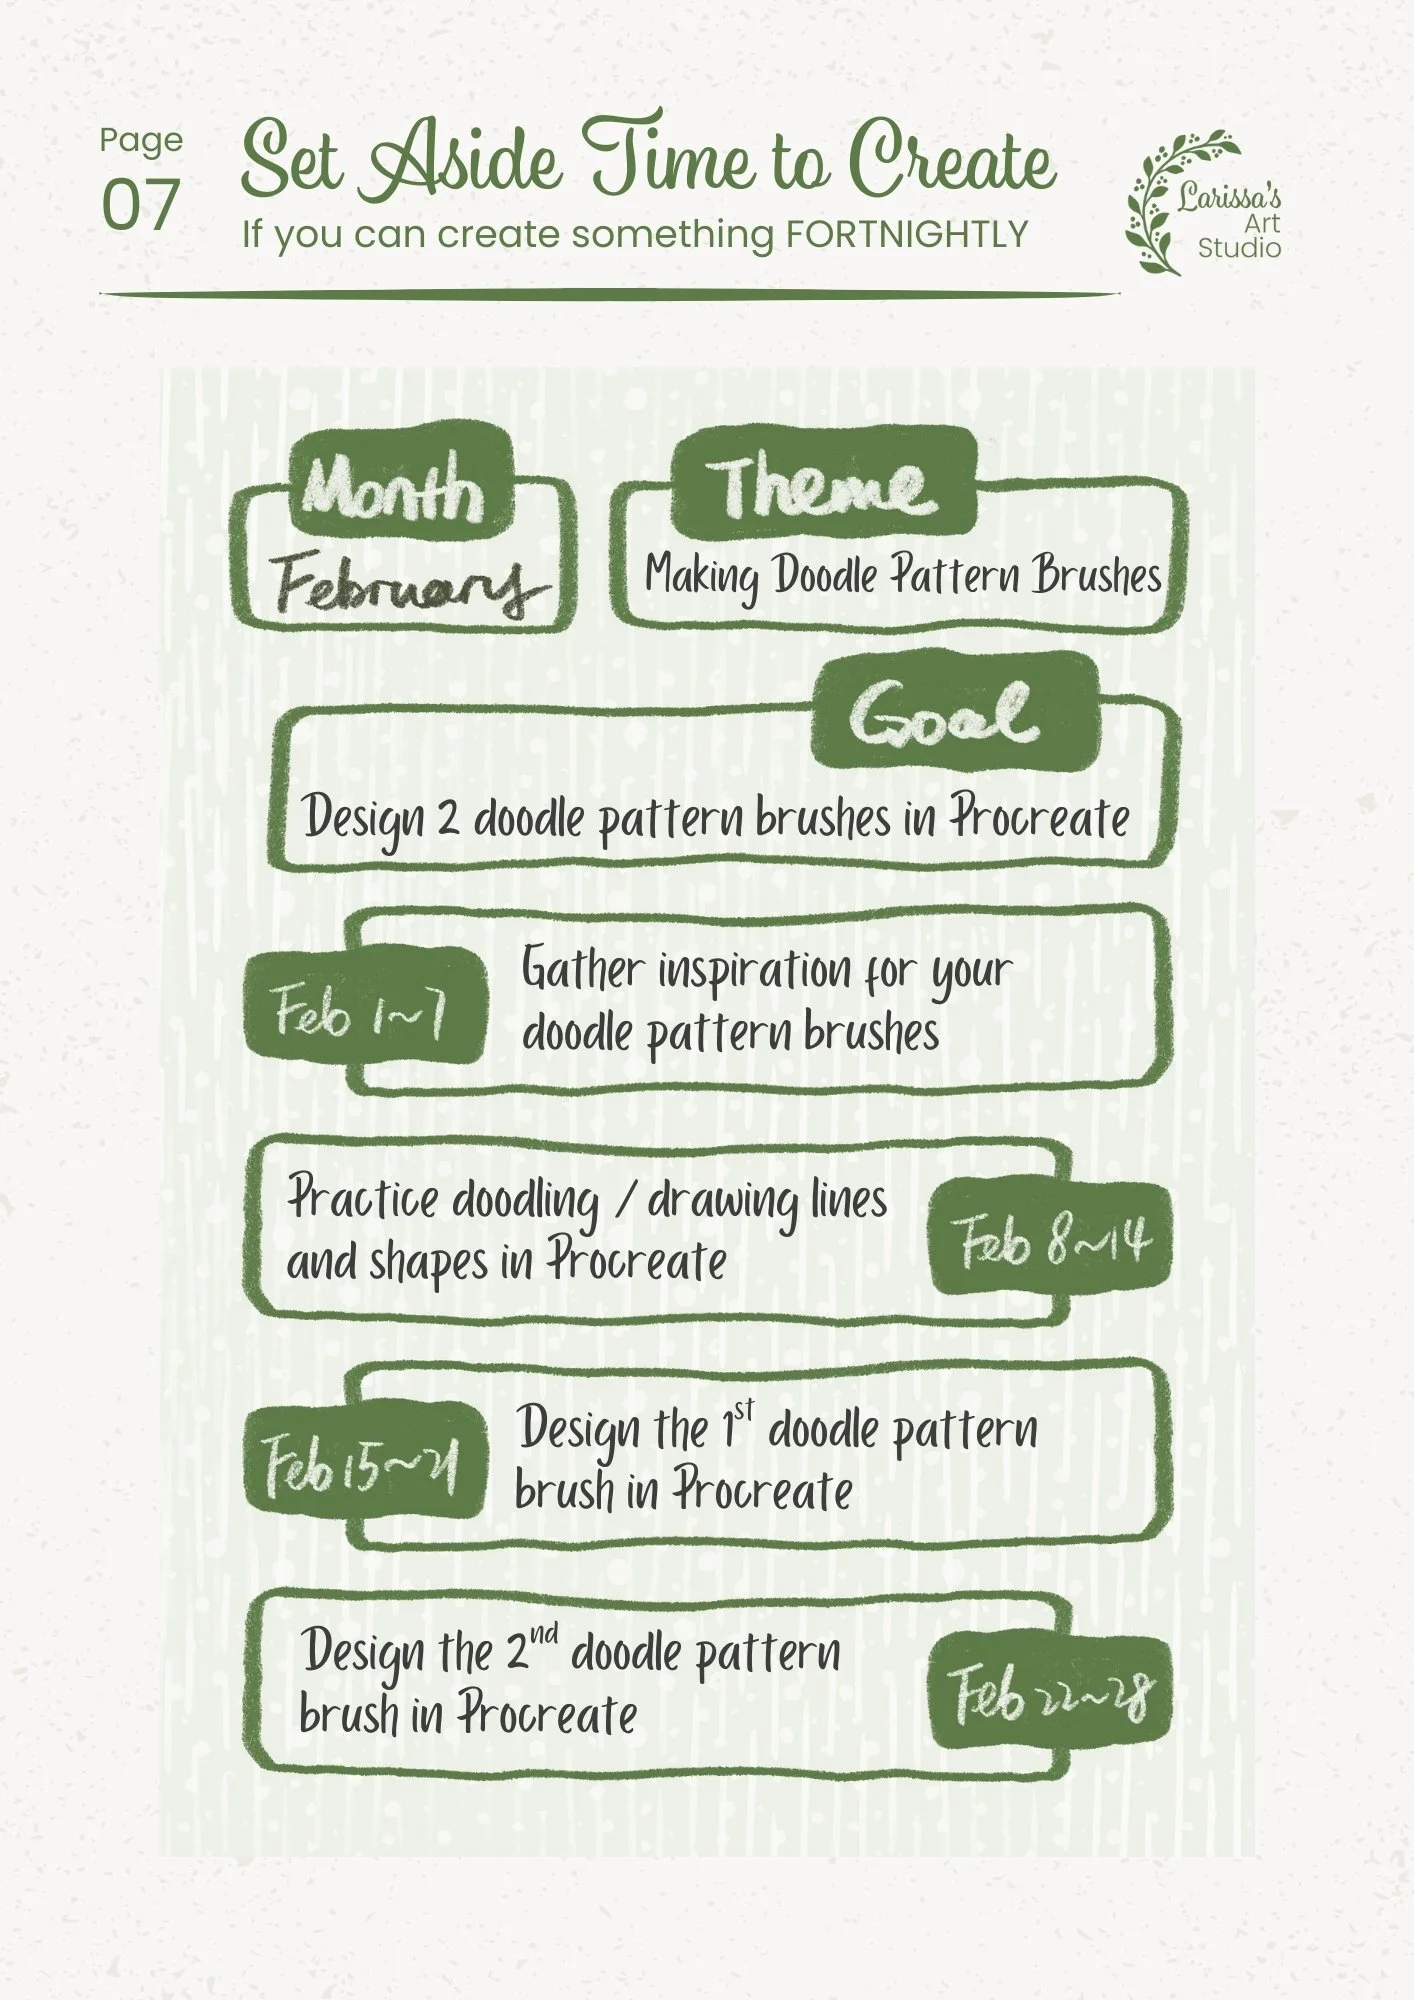 Page
07
Set Aside Time to Create
If you can create something FORTNIGHTLY
Larissa's
Art
Studio
Month
February
Theme
Making Doodle Pattern Brushes
Goal
Design 2 doodle pattern brushes in Procreate
Feb 1~7
Gather inspiration for your
doodle pattern brushes
Practice doodling / drawing lines
and shapes in Procreate
Feb 8~14
Feb 15~21
Design the 1st doodle pattern
brush in Procreate
Design the 2nd doodle pattern
brush in Procreate
Feb 22~28